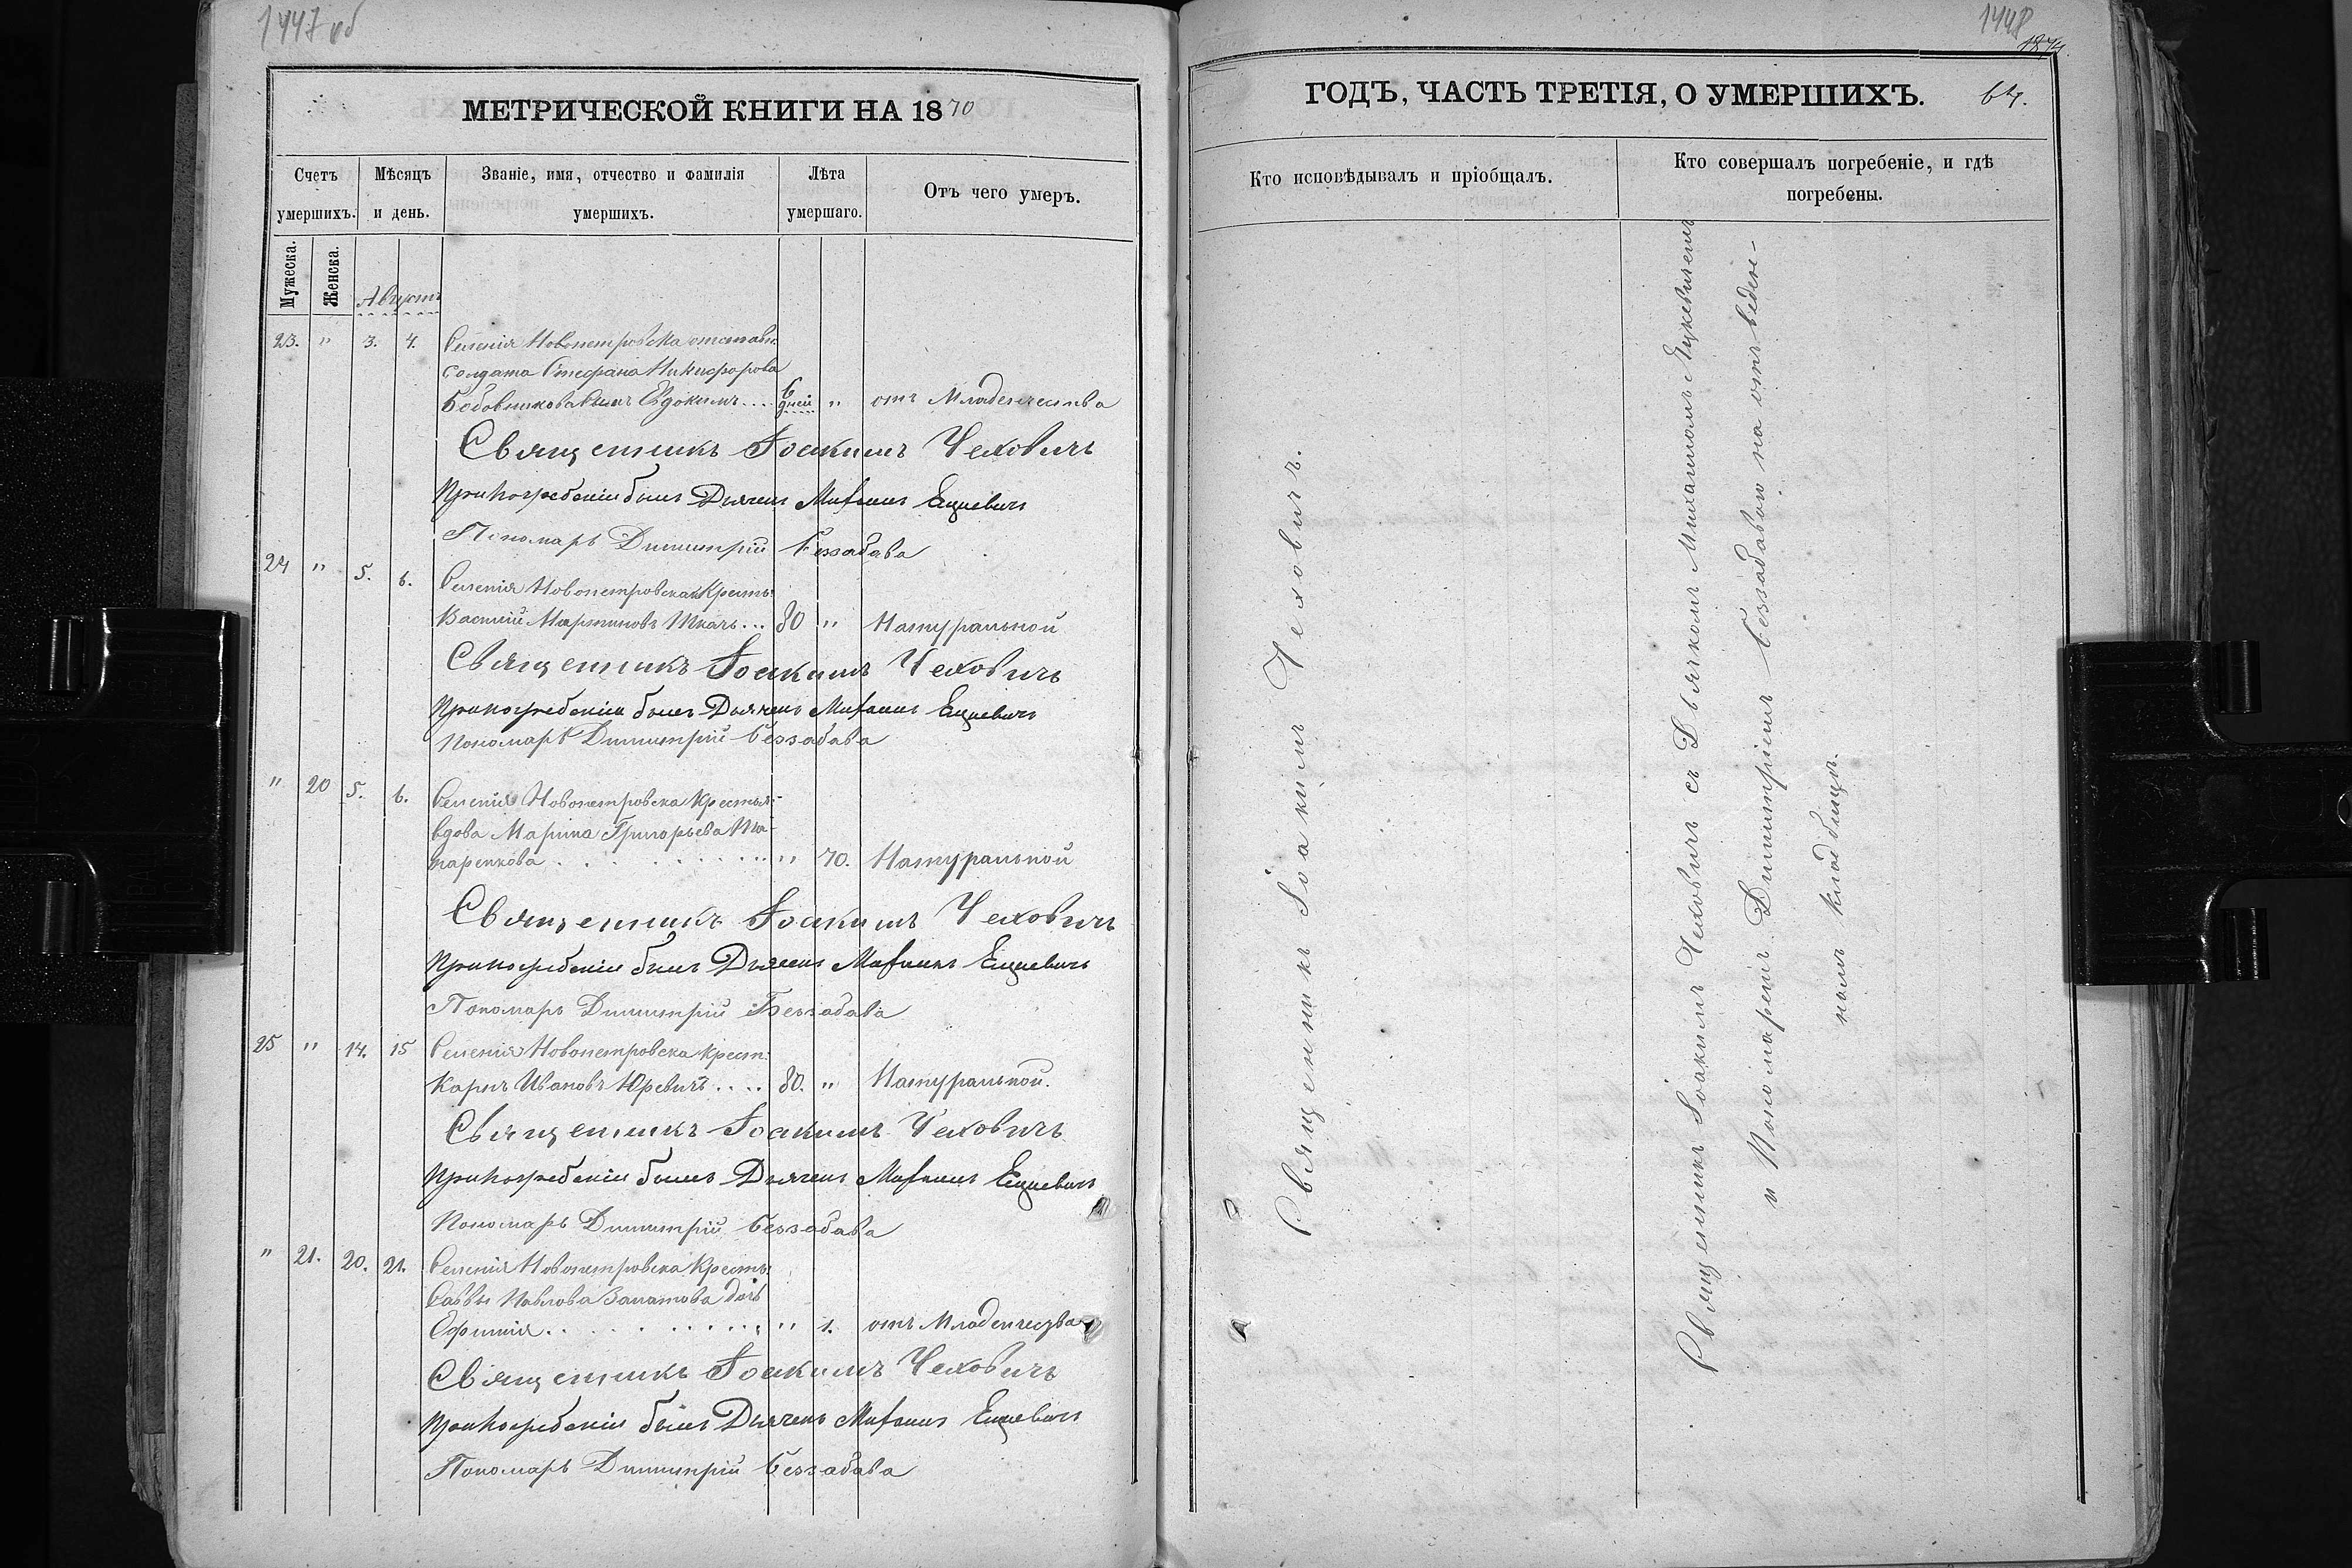 1447 об
МЕТРИЧЕСКОЙ КНИГИ НА 1870
Счетъ умершихъ.
Мѣсяцъ и день.
Званіе, имя, отчество и фамилія умершихъ.
Лѣта умершаго.
Отъ чего умеръ.
Мужеска.
Женска.
Августъ
23. " 3. 4. Селенія Новопетровска отставн.
солдата Стефана Никифорова
сынъ Евдокимъ.... 6 дней " отъ Младенчества
Священникъ Іоакимъ Чеховичъ
При погребеніи былъ Дьячекъ Михаилъ Ецкевичъ
Пономарь Димитрій Беззабава
24 " 5. 6. Селенія Новопетровска Крестъ:
Василій Мартиновъ Ткачъ... 80 " Натуральной
Священникъ Іоакимъ Чеховичъ
При погребеніи былъ Дьячекъ Михаилъ Ецкевичъ
Пономарь Димитрій Беззабава
" 20 5. 6. Селенія Новопетровска Крестья-
вдова Марина Григорьева
" 70. Натуральной
Священникъ Іоакимъ Чеховичъ
При погребеніи былъ Дьячекъ Михаилъ Ецкевичъ
Пономарь Димитрій Беззабава
25 " 14. 15 Селенія Новопетровска крест:
Карпъ Ивановъ Юревичъ.... 80. " Натуральной.
Священникъ Іоакимъ Чеховичъ
При погребеніи былъ Дьячекъ Михаилъ Ецкевичъ
Пономарь Димитрій Беззабава
" 21. 20. 21. Селенія Новопетровска Крестъ:
Саввы Павлова дочь
Ефимія........ " 1. отъ Младенчества
Священникъ Іоакимъ Чеховичъ
При погребеніи былъ Дьячекъ Михаилъ Ецкевичъ
Пономарь Димитрій Беззабава
1448
ГОДЪ, ЧАСТЬ ТРЕТІЯ, О УМЕРШИХЪ.
64.
Кто исповѣдывалъ и пріобщалъ.
Кто совершалъ погребеніе, и гдѣ
погребены.
Священникъ Іоакимъ Чеховичъ.
Священникъ Іоакимъ Чеховичъ съ Дьячкомъ Михаиломъ Яцкевичемъ
и Пономаремъ Димитріемъ Беззабавою на отведен-
номъ кладбищѣ.